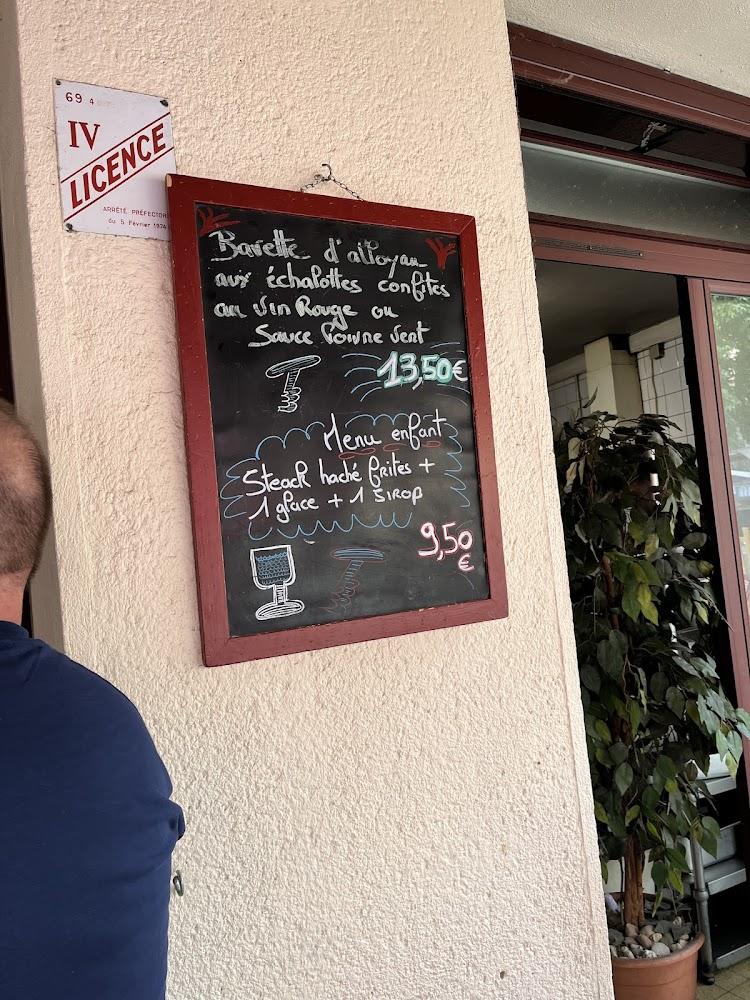 69 4
IV
LICENCE
ARRÊTÉ PRÉFECTOR
du 5 Février 1974
Bavette d'alloyau
aux échalottes confites
au Vin Rouge ou
Sauce Poivre Vert
13,50€
Menu enfant
Steack haché frites +
1 glace + 1 SIROP
9,50
€